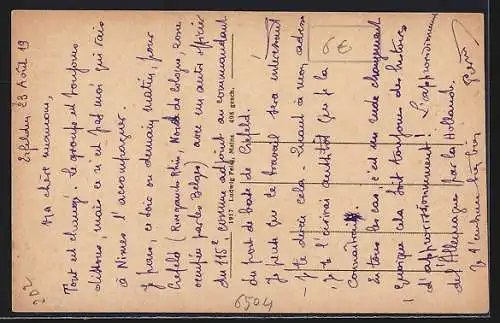 Erfelden 23 Août 19
Ma chère maman,
Tout est changé. Le groupe est toujours
dissous, mais ce n'est pas moi qui vais
à Nîmes l'accompagner.
Je pars, ce soir ou demain matin, pour
Crefeld (Rive gauche Rhin, Nord de Cologne, zone
occupée par les Belges) avec un autre officier
du 115e comme adjoint au commandant
du port de base de Crefeld.
Je crois que le travail sera intéressant
Je te dirai cela. Quant à mon adresse
je te l'écrirai aussitôt que je la
connaîtrai.
En tous les cas, c'est un rude changement
Quoique cela soit toujours des histoires
d'approvisionnement! L'approvisionnement
de l'Allemagne par la Hollande.
Je t'embrasse bien fort
Pierre
1917 Ludwig Feld, Mainz 494 gesch.
6€
202
6504